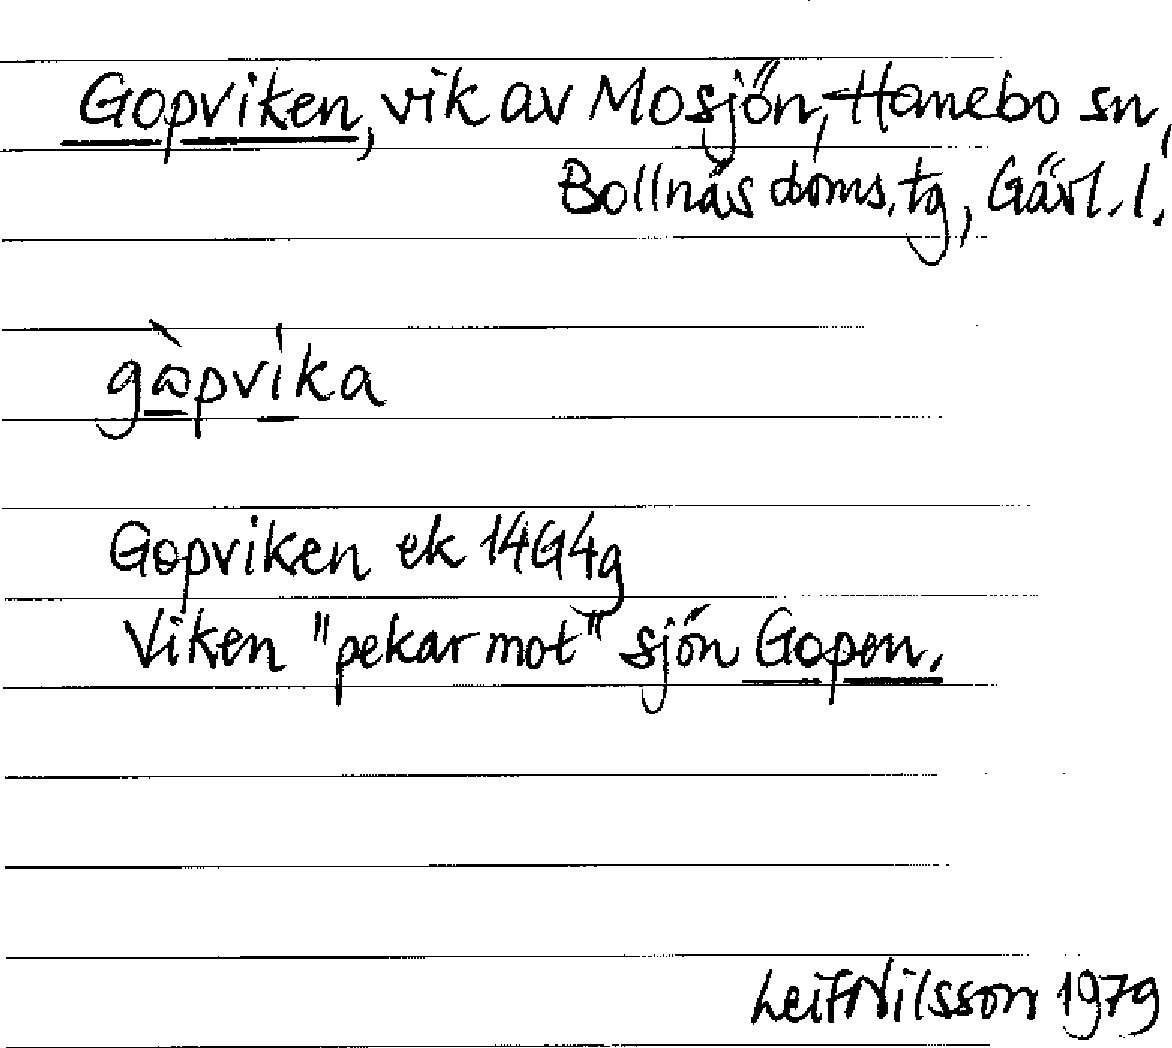 Gopviken, vik av Mosjön, Hanebo sn,
Bollnäs doms. tg, Gävl. l.
gὼpvi̍ka
Gopviken ek 14G4g
Viken "pekar mot" sjön Gopen.
Leif Nilsson 1979